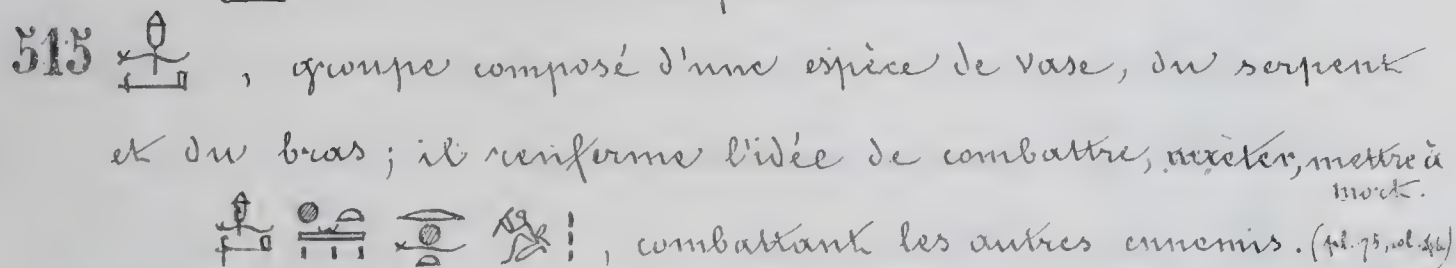 515 , groupe composé d'une espèce de vase, du serpent
et du bras ; il renferme l'idée de combattre, arrêter, mettre à
mort.
, combattant les autres ennemis. (pl. 75, col. )